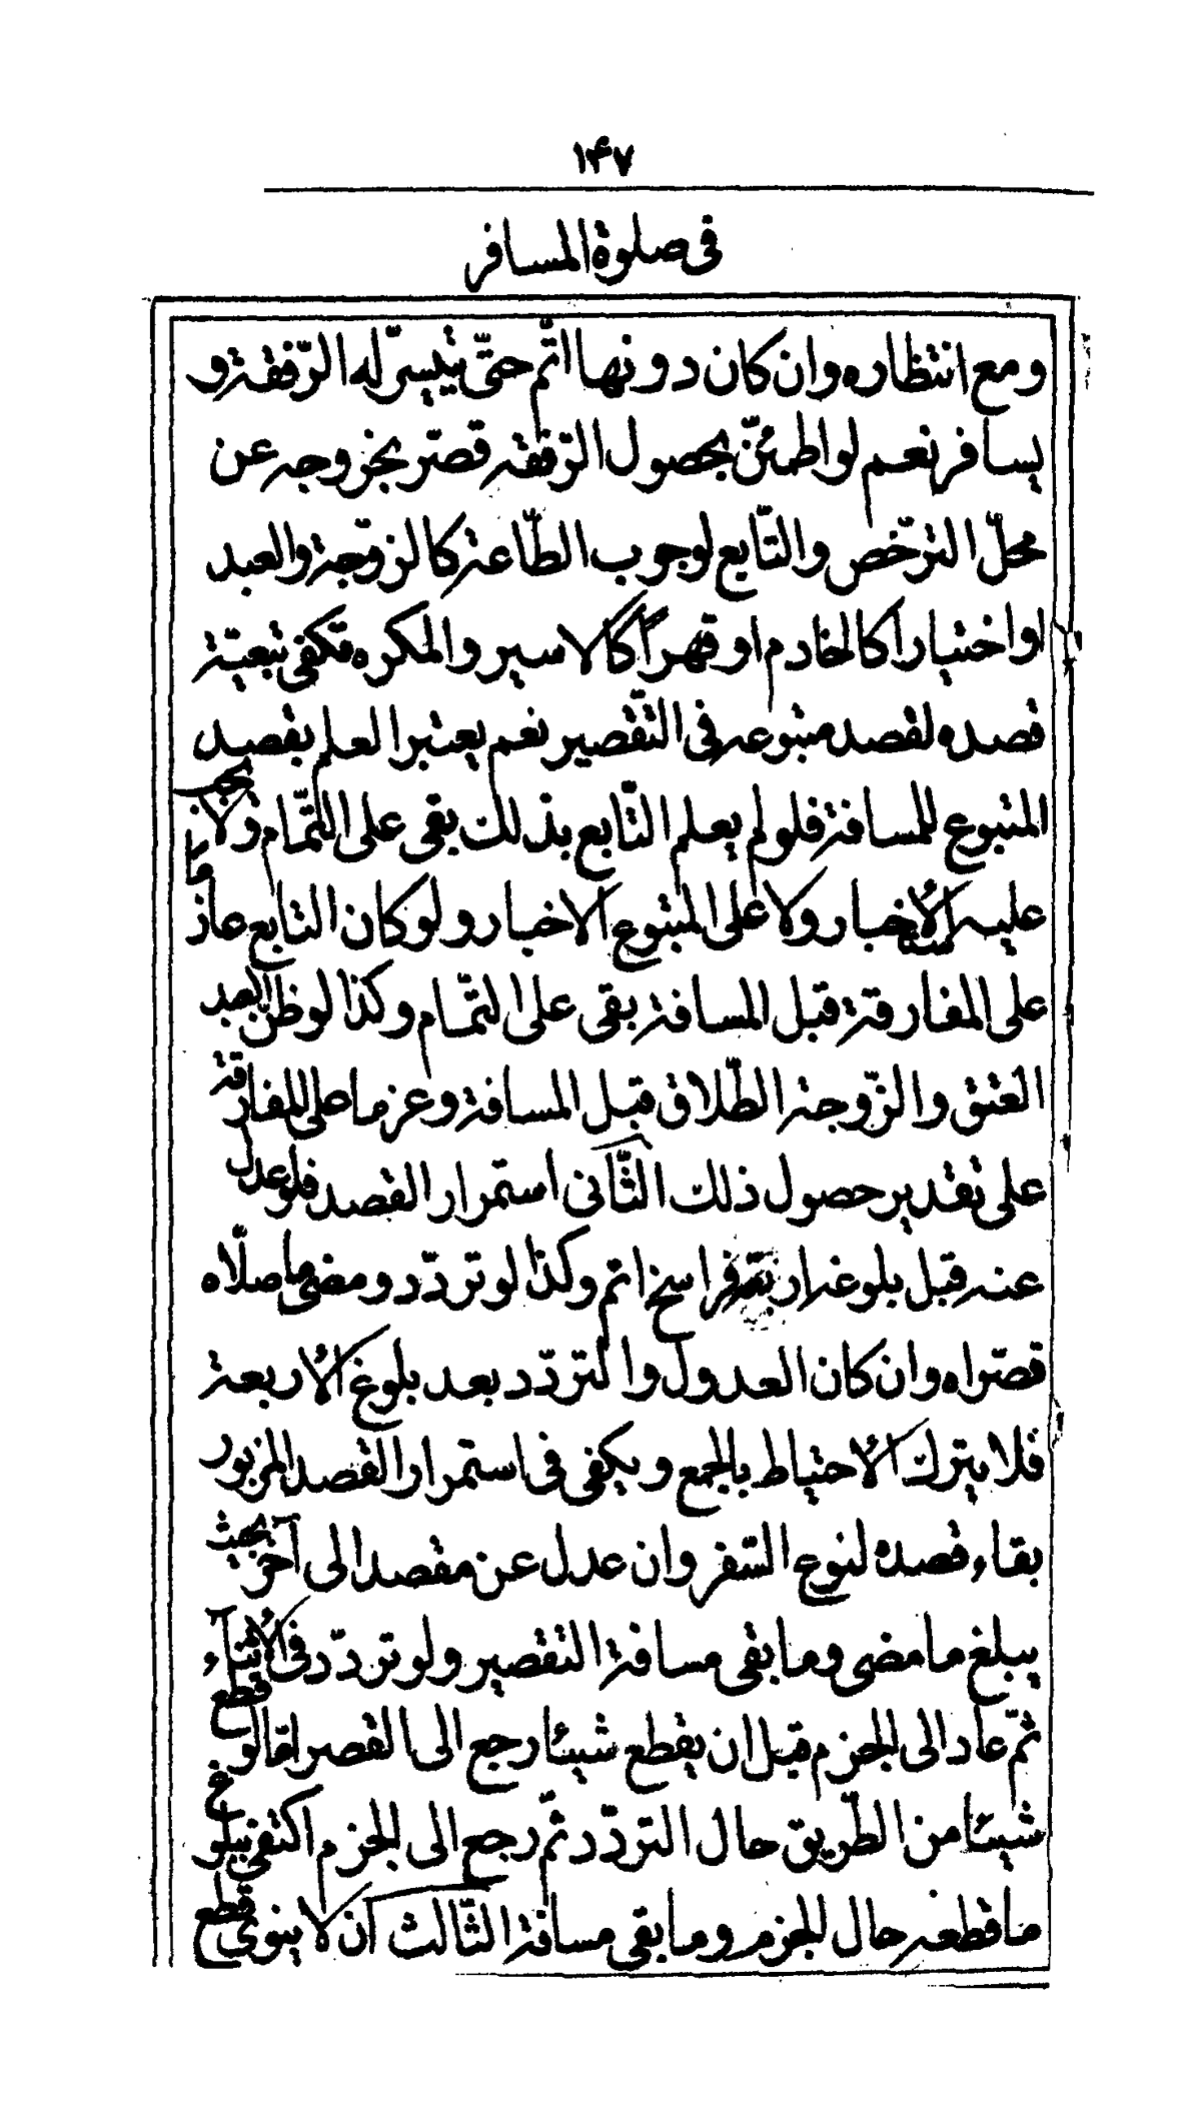 ۱۴۷
فى صلوة المسافر
ومع انتظاره وان كان دونها اتّم حتّى تيسرّ له الرّفقة و
يسافر نعم لو اطمئنّ بحصول الرّفقه قصّر بخروجه عن
محلّ الترخّص والتّابع لوجوب الطّاعة كالزوّجة والعبد
او اختياراً كالخادم او قهراً كالاسير والمكره تكفى تبعيّة
قصده لقصد متبوعه فى التّقصير نعم يعتبر العلم بقصد
المتبوع للمسافة فلو لم يعلم التّابع بذلك بقى على التّمام ولا يجب
عليه الأستخبار ولا على المتبوع الاخبار ولو كان التابع عازماً
على المفارقة قبل المسافة بقى على التّمام وكذا لو ظنّ العبد
العتق والزّوجة الطّلاق قبل المسافة وعزما على المفارقة
على تقدير حصول ذلك الثّانى استمرار القصد فلو عدل
عنه قبل بلوغه اربعة فراسخ اتم وكذا لو تردّد ومضى ما صلّاه
قصّراه وان كان العدول والتردّد بعد بلوغ الأربعة
فلا يترك الأحتياط بالجمع ويكفى فى استمرار القصد المزبور
بقاء قصده لنوع السّفر وان عدل عن مقصد الى آخر بحيث
يبلغ ما مضى وما بقى مسافة التقصير ولو تردّد فى الأثنآء
ثمّ عاد الى الجزم قبل ان يقطع شيئا رجع الى القصر امّا لو قطع
شيئا من الطّريق حال التردّد ثمّ رجع الى الجزم اكتفى ببلوغ
ما قطعه حال الجزم وما بقى مسافة الثّالث ان لا ينوى قطع